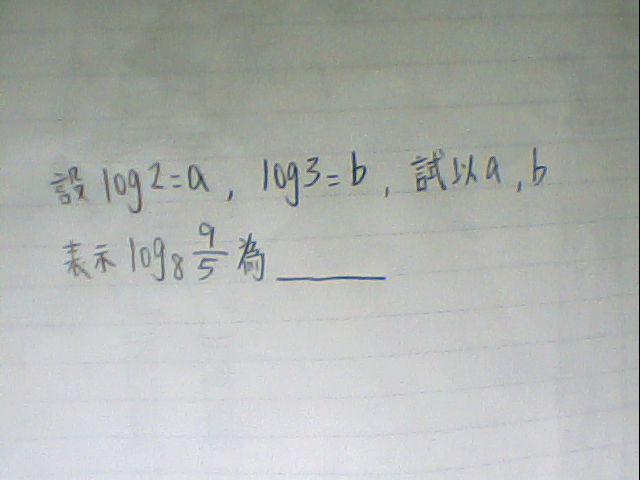 設 log2=a , log3=b , 試以a,b
表示 log₈ 9/5 為______